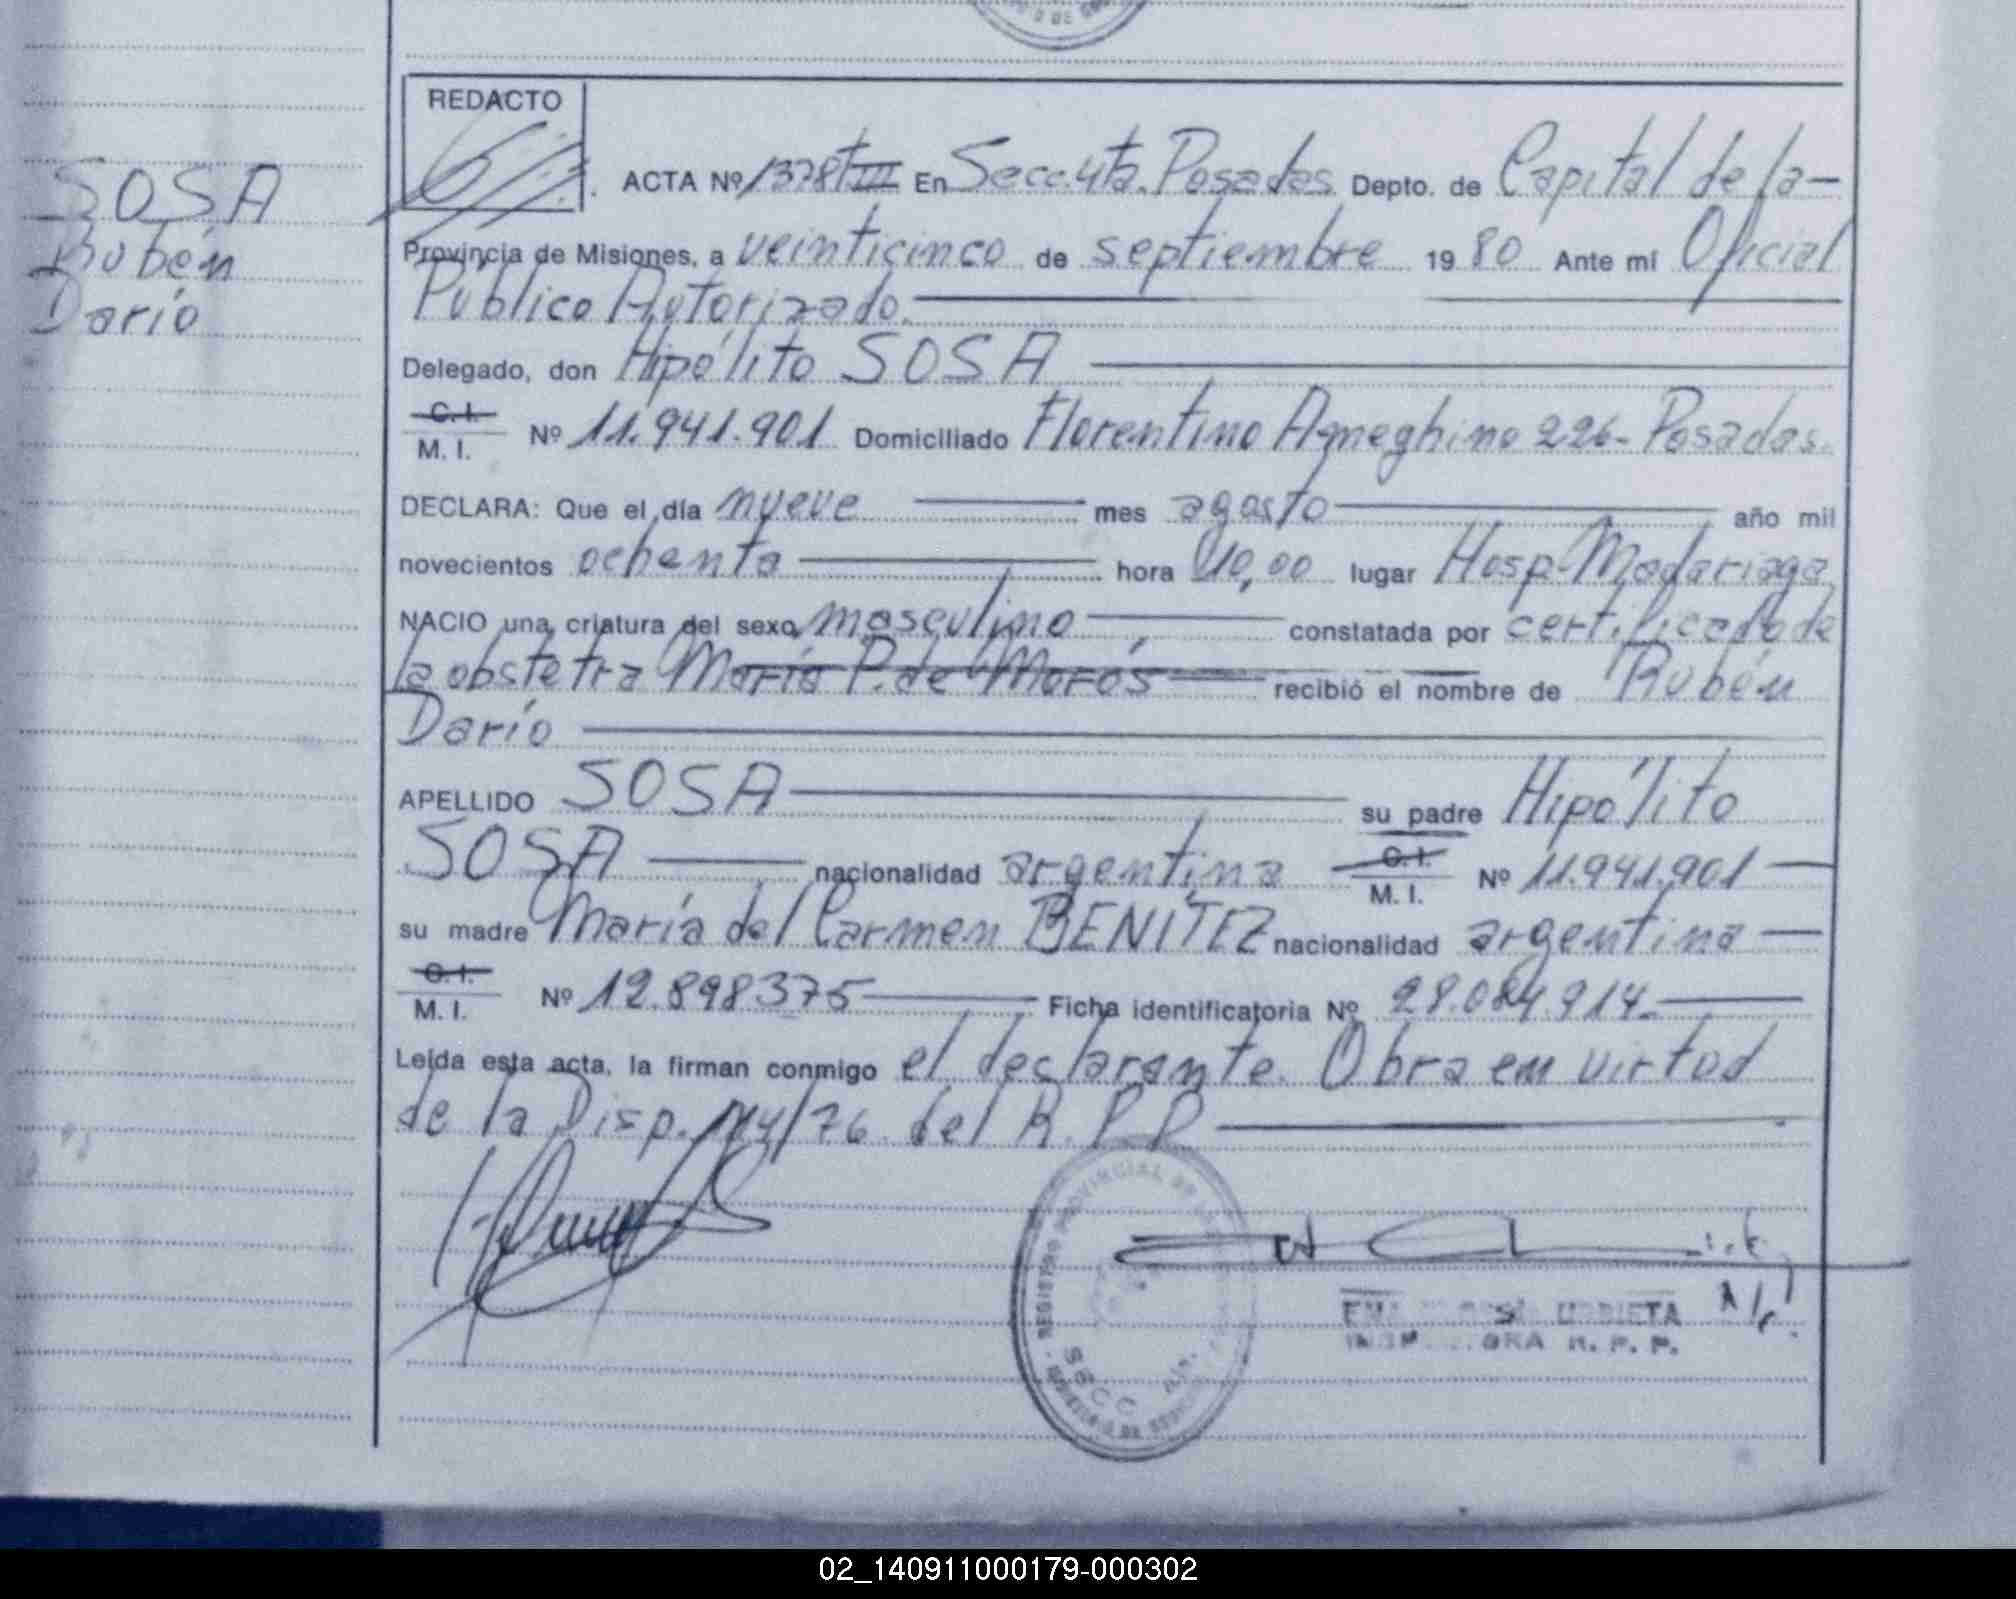 REDACTO
SOSA
Rubén
Darío
ACTA Nº 1378 T III En Secc. 4ta. Posadas Depto. de Capital de la
Provincia de Misiones, a veinticinco de septiembre 1980 Ante mi Oficial
Público Autorizado.
Delegado, don Hipólito SOSA
C. I.
M. I. Nº 11.941.901 Domiciliado Florentino Ameghino 226- Posadas.
DECLARA: Que el día nueve mes agosto año mil
novecientos ochenta hora 10,00 lugar Hosp. Madariaga
NACIO una criatura del sexo masculino constatada por certificado de
la obstetra María P. de Morós recibió el nombre de Rubén
Darío
APELLIDO SOSA su padre Hipólito
SOSA nacionalidad argentina C. I. M. I. Nº 11.941.901
su madre María del Carmen BENITEZ nacionalidad argentina
C. I.
M. I. Nº 12.898375 Ficha identificatoria Nº 28.084.914
Leída esta acta, la firman conmigo el declarante. Obra en virtud
de la Disp. 114/76 del R.P.P
REGISTRO PROVINCIAL DE
SECC
URRIETA
R. P. P.
02_140911000179-000302